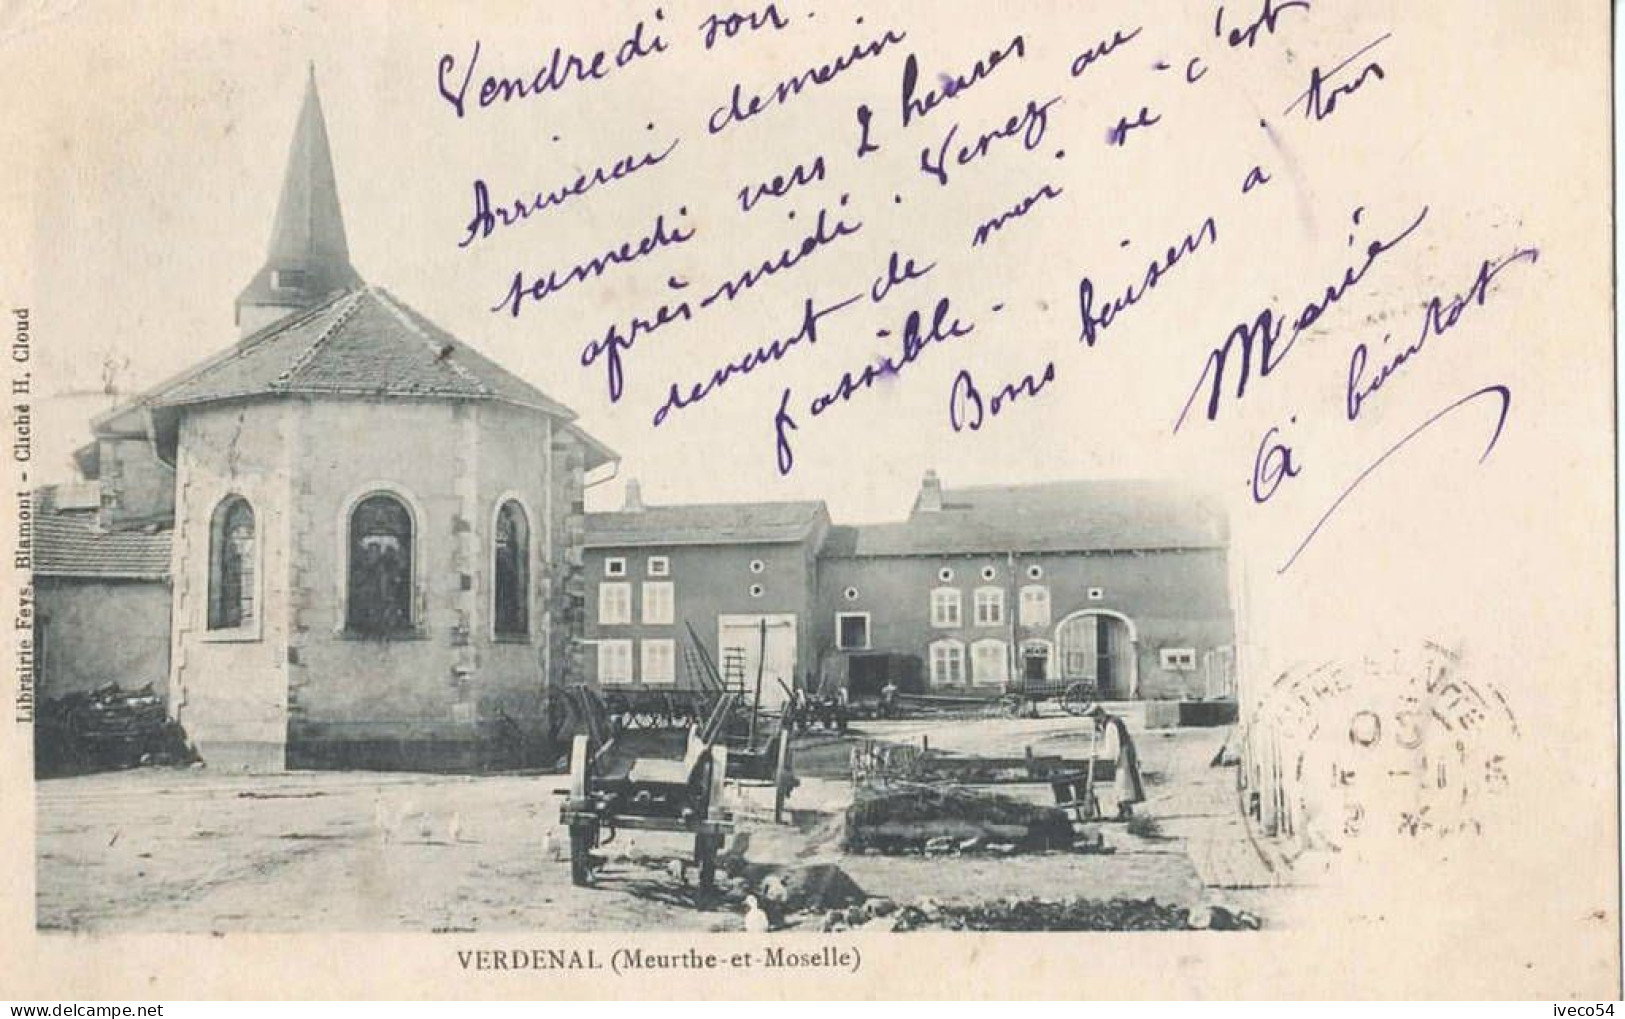 Vendredi soir.
Arriverai demain
samedi vers 2 heures
après-midi. Venez au
devant de moi si c'est
possible.
Bons baisers à tous
Marie
à bientot
Librairie Feys, Blamont - Cliché H. Cloud
VERDENAL (Meurthe-et-Moselle)
iveco54